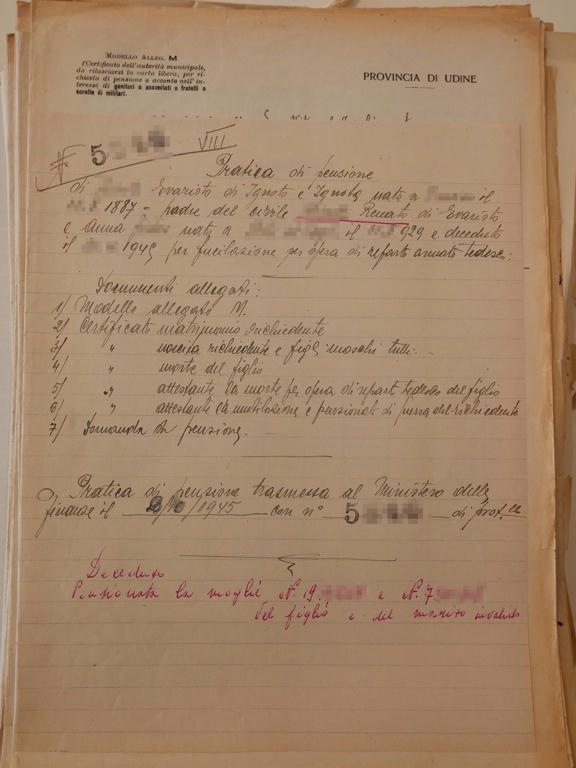 MODELLO ALLEG. M
(Certificato dell'autorità municipale,
da rilasciarsi in carta libera, per ri-
chiesta di pensione o acconto nell'in-
teresse di genitori o assimilati e fratelli e
sorelle di militari.
PROVINCIA DI UDINE
N° 5 VIII
Pratica di pensione
di Evaristo di Ignoto e Ignota nato a il
1887 - padre del civile Renato di Evaristo
e Anna nato a il 929 e deceduto
il 1945 per fucilazione per opera di reparto armato tedesco:
Documenti allegati:
1/ Modello allegato M.
2/ Certificato matrimonio richiedente
3/ " nascita richiedente e figli maschi tutti:
4/ " morte del figlio
5/ " attestante la morte per opera di reparti tedeschi del figlio
6/ " attestante la mutilazione e pensionato di guerra del richiedente
7/ Domanda di pensione.
Pratica di pensione trasmessa al Ministero delle
Finanze il /10/1945 con n° 5 di prot.
Deceduto
Pensionata la moglie N. 19 e N. 7
del figlio e del marito invalido